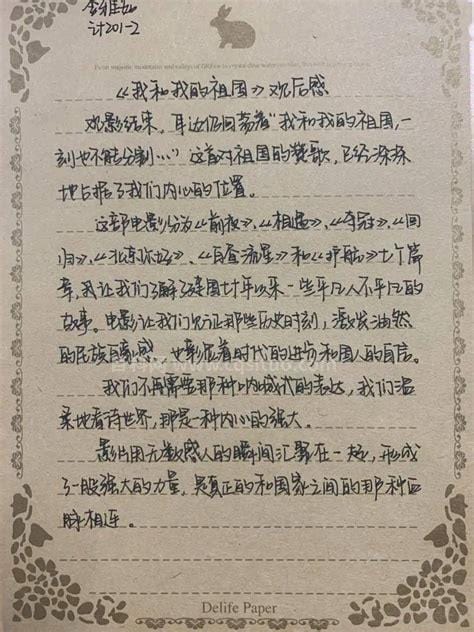 计201-2
《我和我的祖国》观后感
观影结束，耳边仍回荡着“我和我的祖国，一
刻也不能分割……”这首对祖国的赞歌，已经深深
地占据了我们内心的位置。
这部电影分为《前夜》、《相遇》、《夺冠》、《回
归》、《北京你好》、《白昼流星》和《护航》七个篇
章，我让我们了解了建国七十年以来一些平凡人不平凡的
故事。电影让我们见证那些历史时刻，激发油然
的民族自豪感，也彰显着时代的进步和国人的自信。
我们不再需要那种呐喊式的表达，我们温
柔地看待世界，那是一种内心的强大。
影片用无数感人的瞬间汇聚在一起，形成
了一股强大的力量，是真正的和国家之间的那种血
脉相连。
Delife Paper